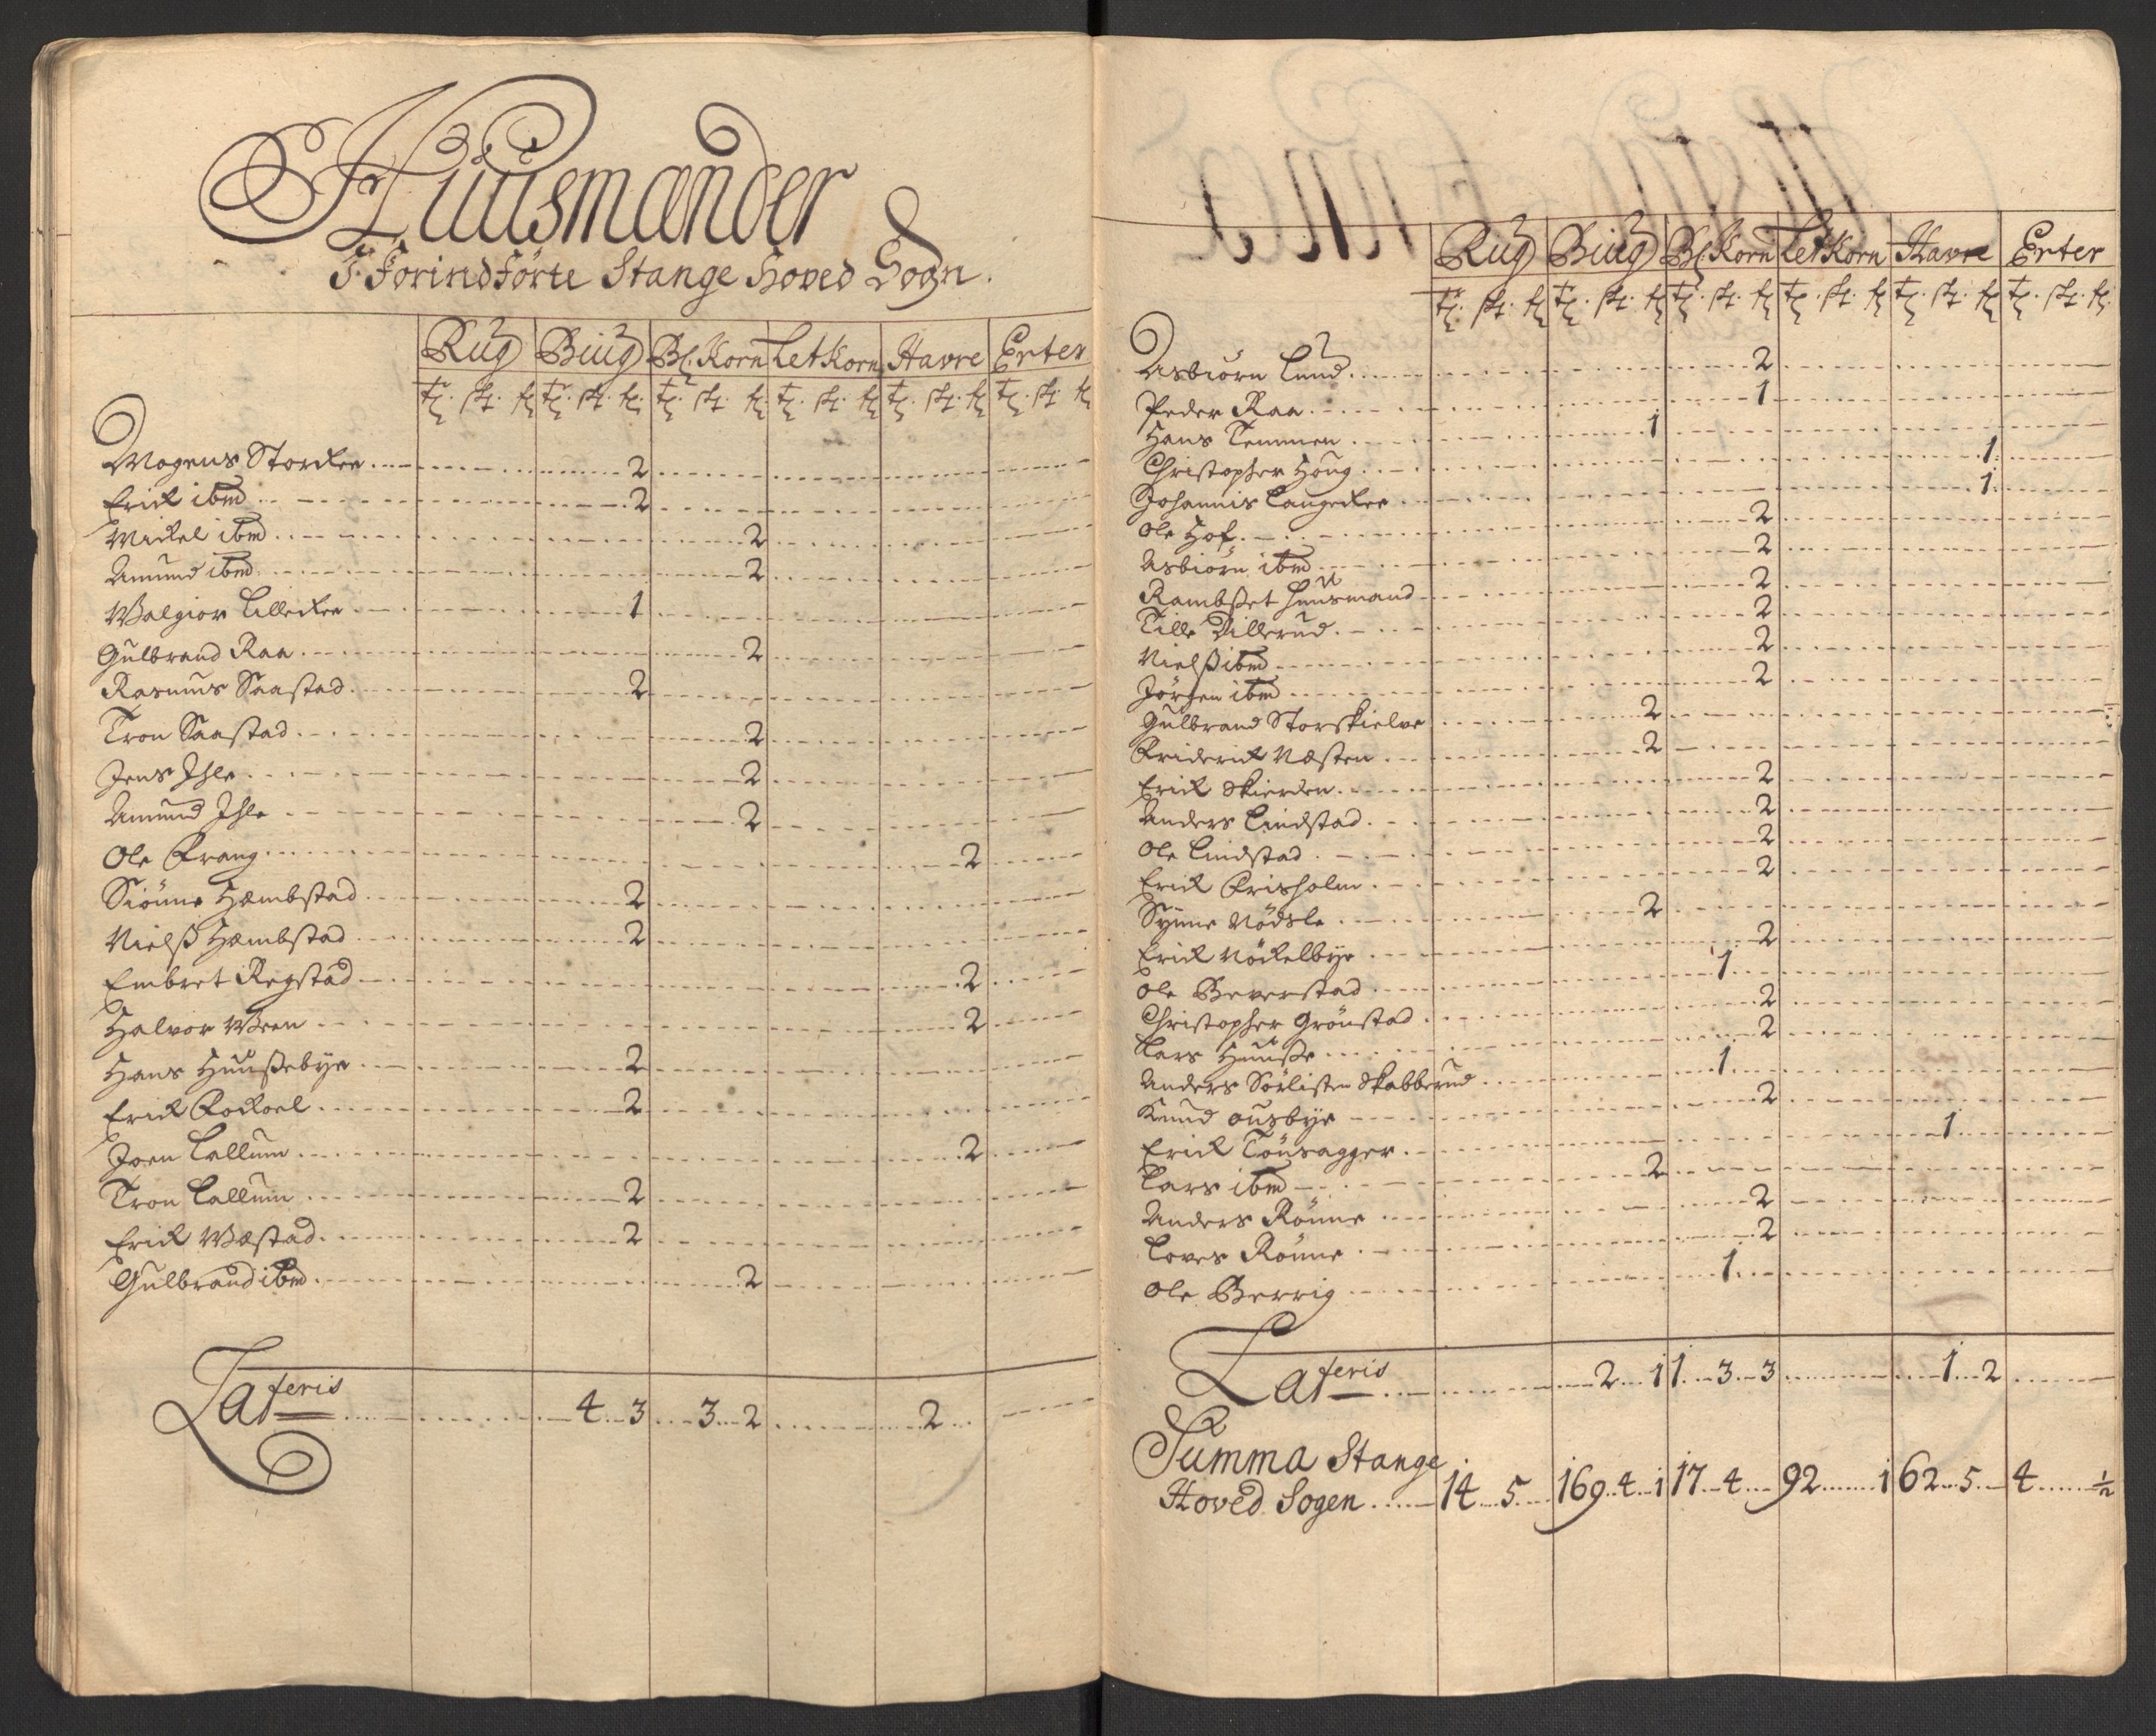 Huusmænder
I Forindførte Stange Hoved Sogn.
Rug Biug Bl. Korn Let Korn Havre Erter
Mogens Storekre 2
Erich ibm 2
Mickel ibm 2
Amund ibm 2
Walgior Lillekre 1
Gulbrand Raa 2
Rasmus Saastad 2
Tron Saastad 2
Jens Ihle 2
Amund Ihle 2
Ole Frang 2
Siönne Hæmbstad 2
Nielß Hæmbstad 2
Embret Regstad 2
Halvor Ween 2
Hans Huußebÿe 2
Erich Rockoel 2
Joen Lallum 2
Tron Lallum 2
Erich Wæstad 2
Gulbrand ibm 2
Lateris 4 3 3 2 2
Rug Biug Bl. Korn Let Korn Havre Erter
Asbiørn Lund 2
Peder Raa 1
Hans Temmen 1
Christopher Houg 1
Johannis Langekre 1
Ole Hof 2
Asbiørn ibm 2
Rambßet Huusmand 2
Tille Dillerud 2
Nielß ibm 2
Jørgen ibm 2
Gulbrand Storskielve 2
Friderich Næsten 2
Erich Skierden 2
Anders Lindstad 2
Ole Lindstad 2
Erich Frisholm 2
Synne Nødsle 2
Erich Nöckelbye 2
Ole Beverstad 1
Christopher Grönstad 2
Lars Huuße 2
Anders Sörlisten Skabberud 1
Knud ousbÿe 2
Erich Tönsagger 1
Lars ibm 2
Anders Rönne 2
Lores Rönne 2
Ole Berrig 1
Lateris 2 1 1 3 3 1 2
Summa Stange
Hoved Sogen 14 5 169 4 1 17 4 92 1 62 5 4 ½